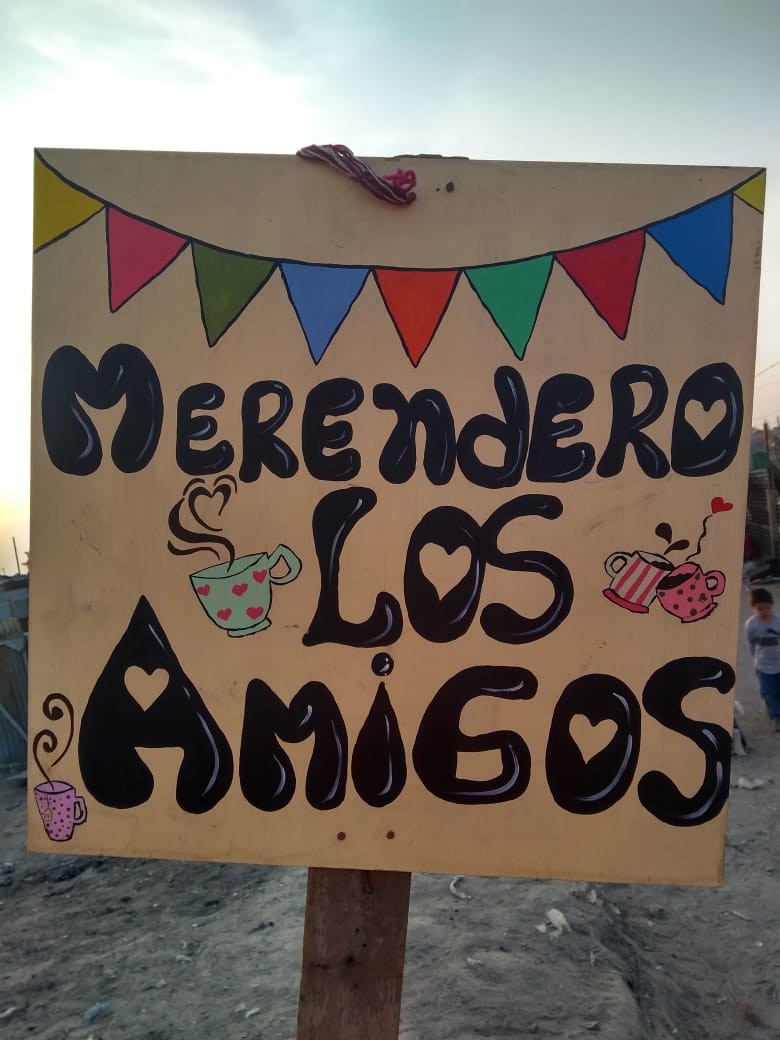 MERENDERO
LOS
AMiGOS